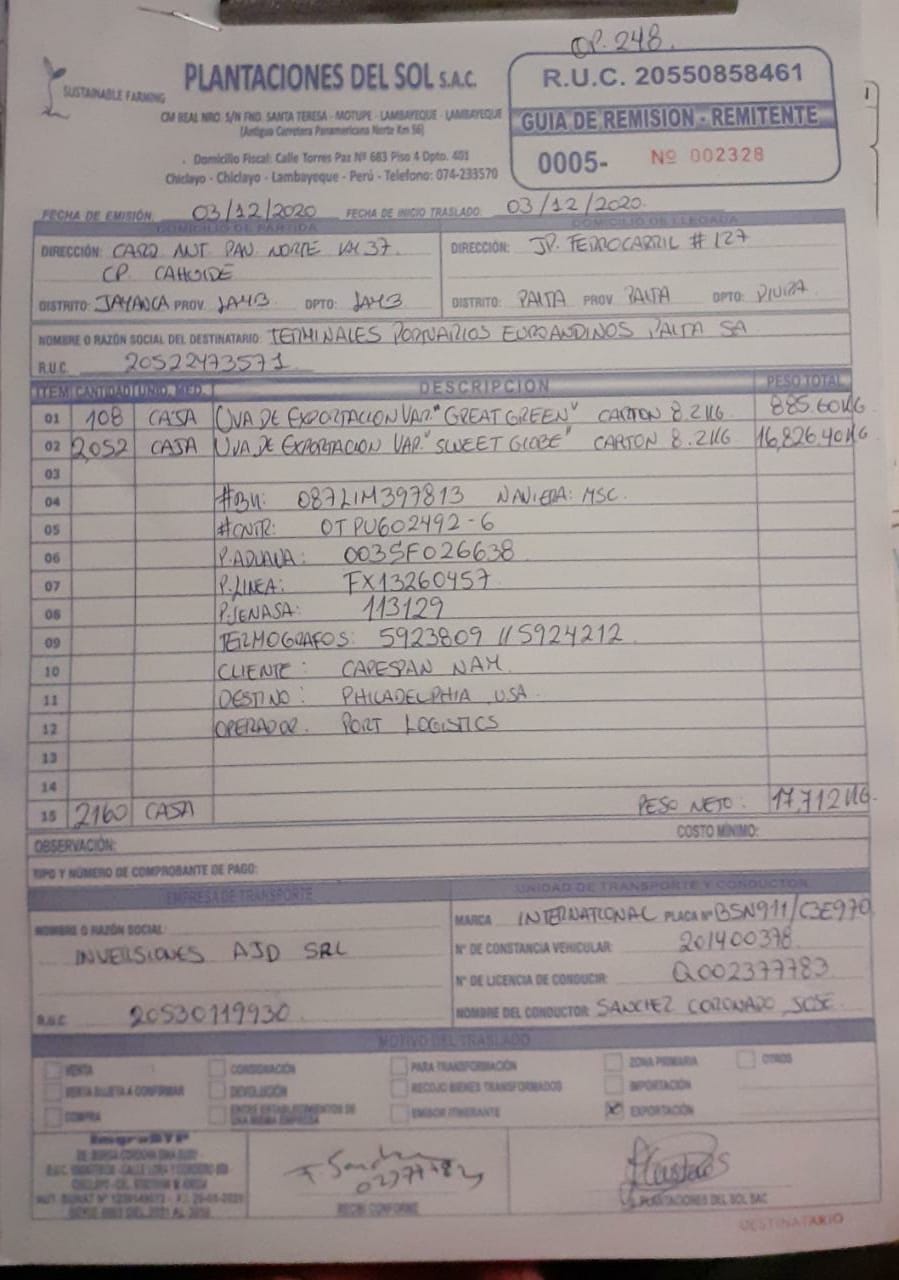 OP. 248.
SUSTAINABLE FARMING
PLANTACIONES DEL SOL S.A.C.
CM REAL NRO. S/N FND. SANTA TERESA - MOTUPE - LAMBAYEQUE - LAMBAYEQUE
(Antigua Carretera Panamericana Norte Km 56)
. Domicilio Fiscal: Calle Torres Paz Nº 683 Piso 4 Dpto. 401
Chiclayo - Chiclayo - Lambayeque - Perú - Telefono: 074-233570
R.U.C. 20550858461
GUIA DE REMISION - REMITENTE
0005- Nº 002328
FECHA DE EMISIÓN: 03/12/2020 FECHA DE INICIO TRASLADO: 03/12/2020.
DOMICILIO DE PARTIDA
DIRECCIÓN: CARR. ANT. PAN. NORTE KM 37.
CP. CAHUIDE
DISTRITO: JAYANCA PROV. LAMB DPTO: LAMB
DOMICILIO DE LLEGADA
DIRECCIÓN: JP. FERROCARRIL # 127
DISTRITO: PAITA PROV PAITA DPTO: PIURA
NOMBRE O RAZÓN SOCIAL DEL DESTINATARIO: TERMINALES PORTUARIOS EUROANDINOS PAITA SA
R.U.C. 20522473571
ITEM CANTIDAD UNID. MED. DESCRIPCION PESO TOTAL
01 108 CAJA UVA DE EXPORTACION VAR." GREAT GREEN" CARTON 8.2KG 885.60KG
02 2,052 CAJA UVA DE EXPORTACION VAR" SWEET GLOBE" CARTON 8.2KG 16,826.40KG
03
04 #BK: 087LIM397813 NAVIERA: MSC.
05 #CNTR: OTPU602492-6
06 P.ADUANA: 003SF026638
07 P.LINEA: FX13260457
08 P.SENASA: 113129
09 TERMOGRAFOS: 5923809 // 5924212
10 CLIENTE: CAPESPAN NAM.
11 DESTINO: PHILADELPHIA USA.
12 OPERADOR. PORT LOGISTICS
13
14
15 2160 CAJA PESO NETO: 17,712KG.
OBSERVACIÓN: COSTO MÍNIMO:
TIPO Y NÚMERO DE COMPROBANTE DE PAGO:
EMPRESA DE TRANSPORTE
NOMBRE O RAZÓN SOCIAL:
INVERSIONES AJD SRL
R.U.C 20530119930
UNIDAD DE TRANSPORTE Y CONDUCTOR
MARCA INTERNATIONAL PLACA Nº BSN911/C3E970
N° DE CONSTANCIA VEHICULAR: 201400378
N° DE LICENCIA DE CONDUCIR: Q002377783
NOMBRE DEL CONDUCTOR: SANCHEZ CORONADO JOSE
MOTIVO DEL TRASLADO
VENTA CONSIGNACIÓN PARA TRANSFORMACIÓN ZONA PRIMARIA OTROS
VENTA SUJETA A CONFIRMAR DEVOLUCIÓN RECOJO BIENES TRANSFORMADOS IMPORTACIÓN
COMPRA ENTRE ESTABLECIMIENTOS DE UNA MISMA EMPRESA EMISOR ITINERANTE X EXPORTACIÓN
RECIBÍ CONFORME
PLANTACIONES DEL SOL SAC
DESTINATARIO